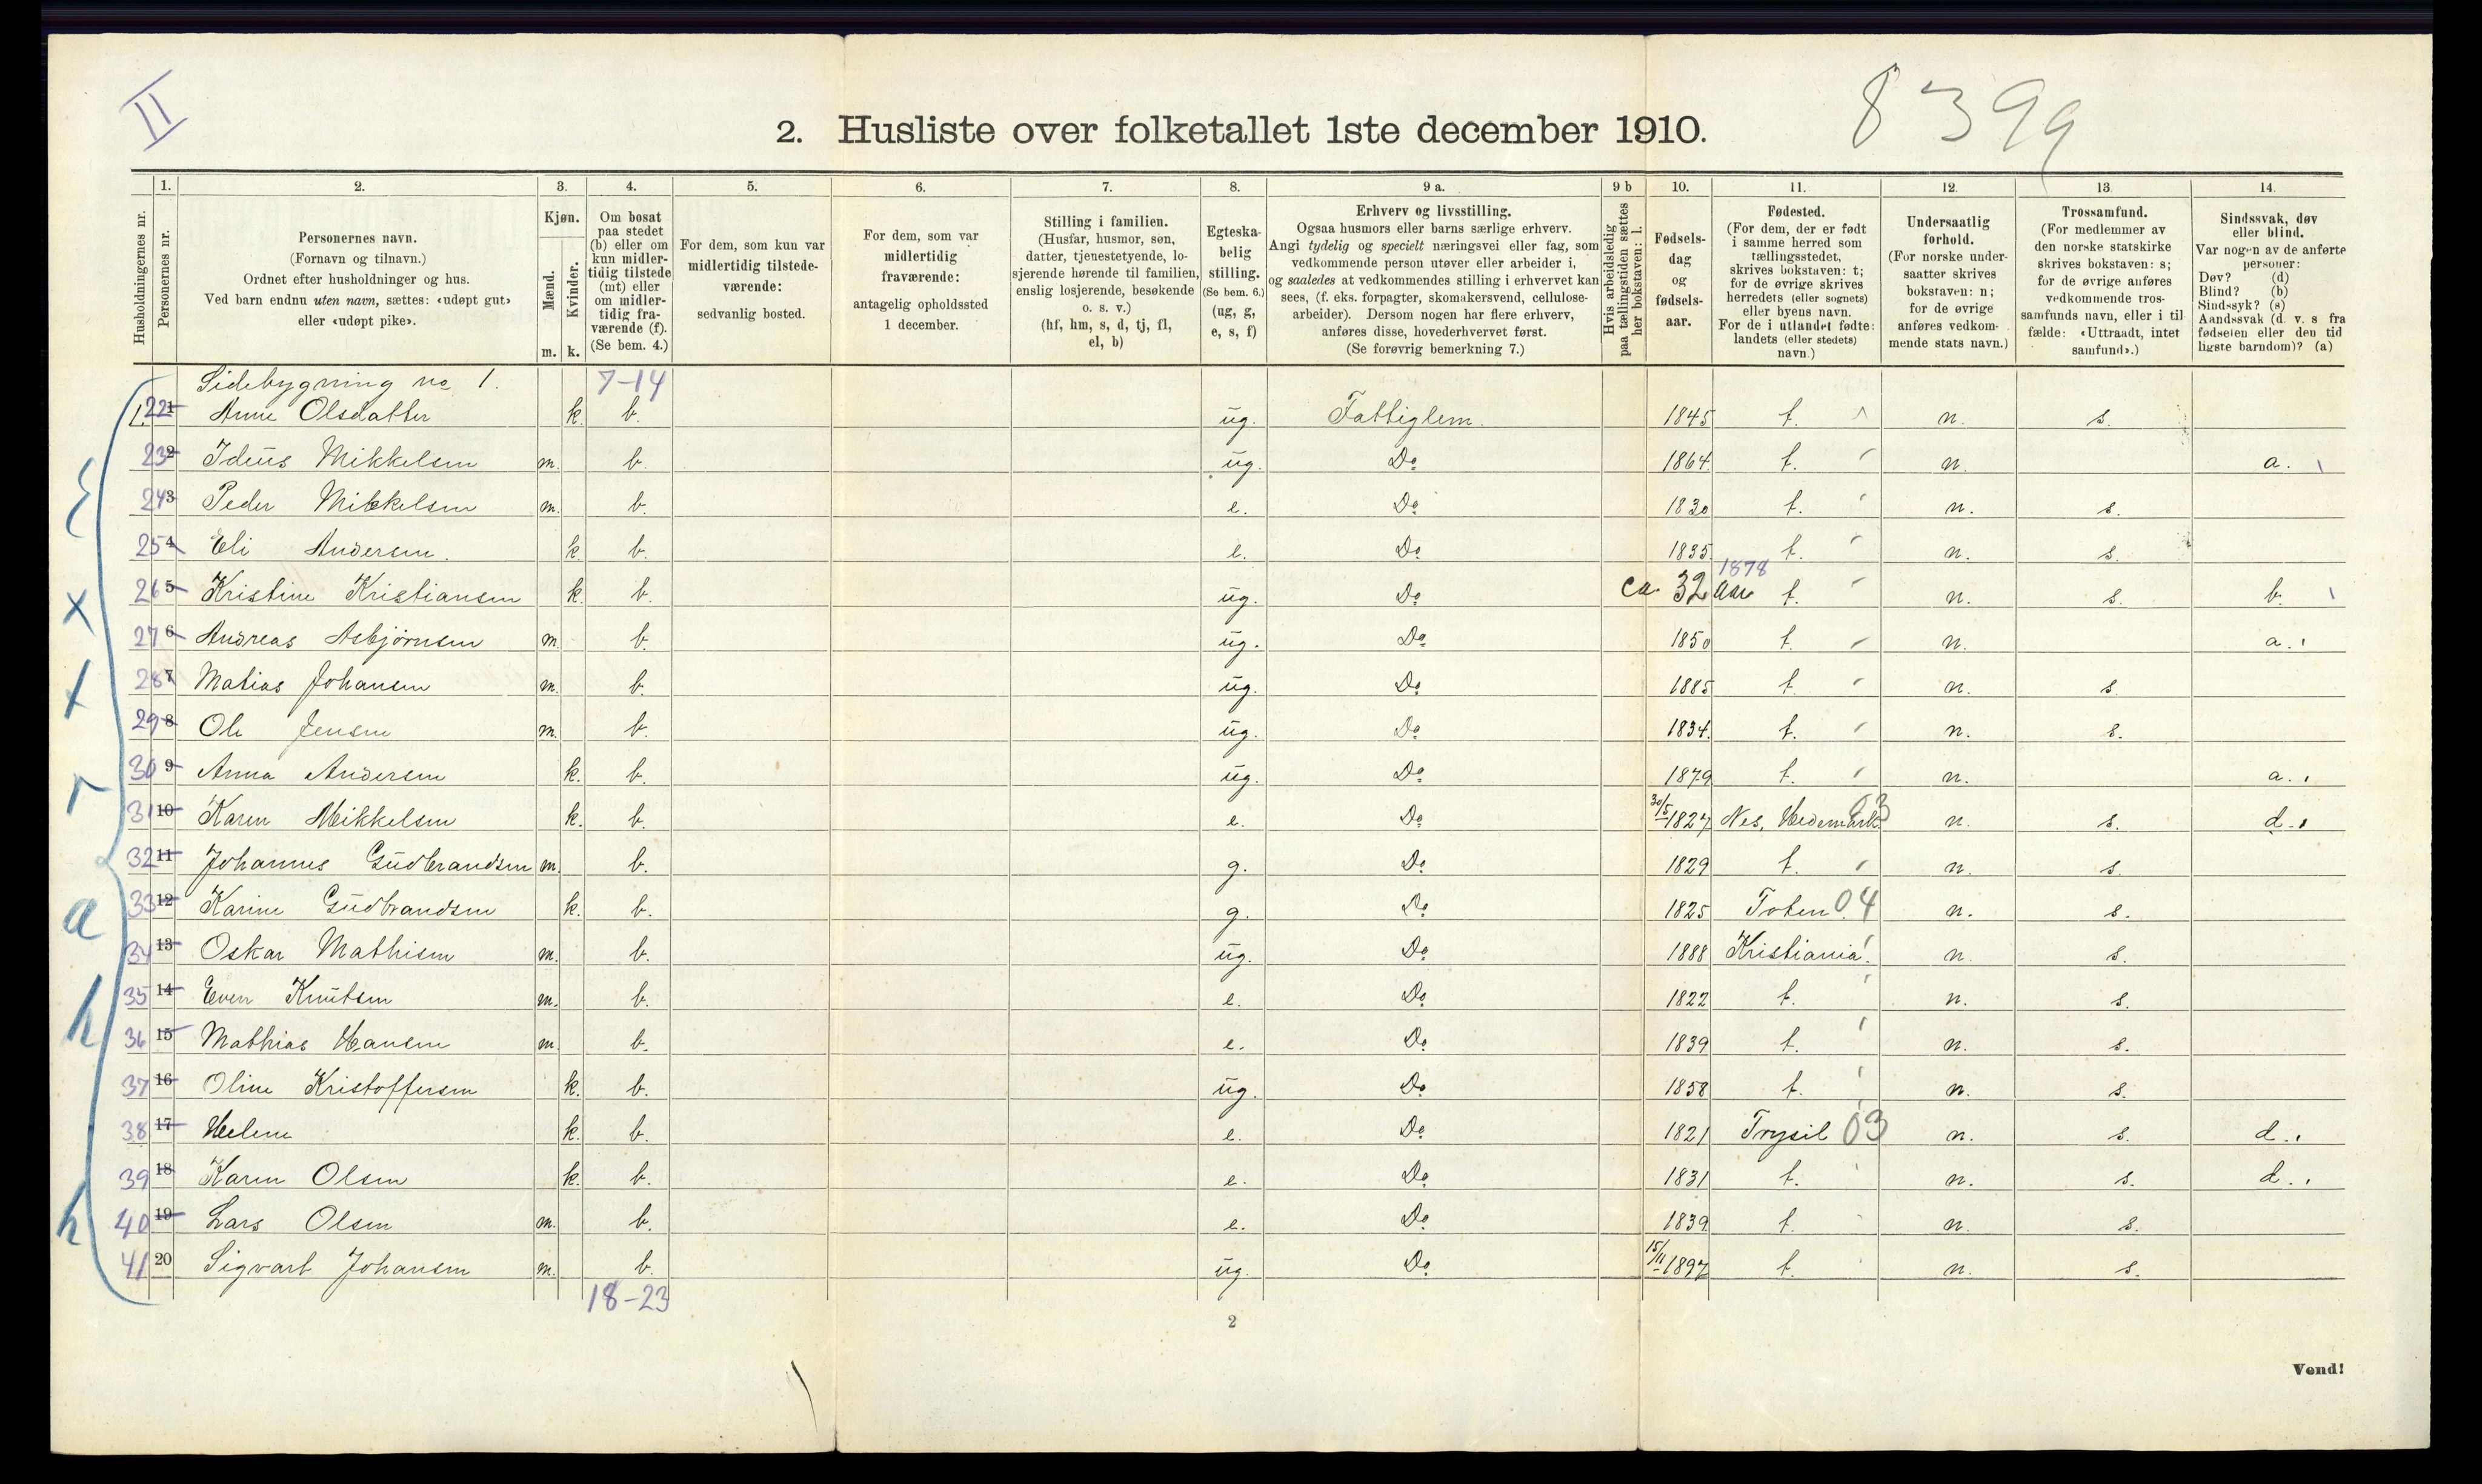 II
8399
2. Husliste over folketallet 1ste december 1910.
1. 2. 3. 4. 5. 6. 7. 8. 9 a. 9 b 10. 11. 12. 13 14.
Husholdningernes nr.
Personernes nr.
Personernes navn.
(Fornavn og tilnavn.)
Ordnet efter husholdninger og hus.
Ved barn endnu uten navn, sættes: «udøpt gut»
eller «udøpt pike».
Kjøn.
Mænd.
Kvinder.
m. k.
Om bosat
paa stedet
(b) eller om
kun midler-
tidig tilstede
(mt) eller
om midler-
tidig fra-
værende (f).
(Se bem. 4.)
For dem, som kun var
midlertidig tilstede-
værende:
sedvanlig bosted.
For dem, som var
midlertidig
fraværende:
antagelig opholdssted
1 december.
Stilling i familien.
(Husfar, husmor, søn,
datter, tjenestetyende, lo-
sjerende hørende til familien,
enslig losjerende, besøkende
o. s. v.)
(hf, hm, s, d, tj, fl,
el, b)
Egteska-
belig
stilling.
(Se bem. 6.)
(ug, g,
e, s, f)
Erhverv og livsstilling.
Ogsaa husmors eller barns særlige erhverv.
Angi tydelig og specielt næringsvei eller fag, som
vedkommende person utøver eller arbeider i,
og saaledes at vedkommendes stilling i erhvervet kan
sees, (f. eks. forpagter, skomakersvend, cellulose-
arbeider). Dersom nogen har flere erhverv,
anføres disse, hovederhvervet først.
(Se forøvrig bemerkning 7.)
Hvis arbeidsledig
paa tællingstiden sættes
her bokstaven: l.
Fødsels-
dag
og
fødsels-
aar.
Fødested.
(For dem, der er født
i samme herred som
tællingsstedet,
skrives bokstaven: t;
for de øvrige skrives
herredets (eller sognets)
eller byens navn.
For de i utlandet fødte:
landets (eller stedets)
navn.)
Undersaatlig
forhold.
(For norske under-
saatter skrives
bokstaven: n;
for de øvrige
anføres vedkom-
mende stats navn.)
Trossamfund.
(For medlemmer av
den norske statskirke
skrives bokstaven: s;
for de øvrige anføres
vedkommende tros-
samfunds navn, eller i til
fælde: «Uttraadt, intet
samfund».)
Sindssvak, døv
eller blind.
Var nogen av de anførte
personer:
Døv? (d)
Blind? (b)
Sindssyk? (s)
Aandssvak (d. v. s fra
fødselen eller den tid
ligste barndom)? (a)
Sidebygning no 1. 7-14
1. 22 1 Anne Olsdatter k. b. ug. Fattiglem. 1845 t. n. s.
23 2 Ideus Mikkelsen m. b. ug. Do 1864. t. n. a.
24 3 Peder Mikkelsen m. b. e. Do 1830 t. n. s.
25 4 Eli Andersen. k. b. e. Do 1835. t. n. s.
1878
26 5 Kristine Kristiansen k. b. ug. Do ca. 32 aar t. n. s. b.
27 6 Andreas Asbjørnsen m. b. ug. Do 1850 t. n. a.
28 7 Matias Johansen m. b. ug. Do 1885 t. n. s.
29 8 Ole Jensen m. b. ug. Do 1834. t. n. s.
30 9 Anna Andersen k. b. ug. Do 1879 t. n. a.
31 10 Karen Mikkelsen k. b. e. Do 30/5 1827 Nes, Hedemark 03 n. s. d.
32 11 Johannes Gudbrandsen m. b. g. Do 1829 t. n. s.
33 12 Karine Gudbrandsen k. b. g. Do 1825 Toten 04 n. s.
34 13 Oskar Mathisen m. b. ug. Do 1888 Kristiania. n. s.
35 14 Even Knutsen m. b. e. Do 1822 t. n. s.
36 15 Mathias Hansen m. b. e. Do 1839 t. n. s.
37 16 Oline Kristoffersen k. b. ug. Do 1858 t. n. s.
38 17 Helene k. b. e. Do 1821 Trysil 03 n. s. d.
39 18 Karen Olsen k. b. e. Do 1831 t. n. s. d.
40 19 Lars Olsen m. b. e. Do 1839 t. n. s.
41 20 Sigvart Johansen m. b. ug. Do 15/11 1897 t. n. s.
18-23
2
Vend!